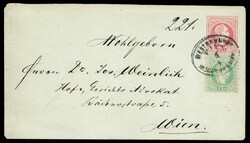 221.
Wohlgeborn
Herrn Dr. Jos. Weinlich
Hof & Gerichts Advokat
Kärtnerstraße 5.
Wien.